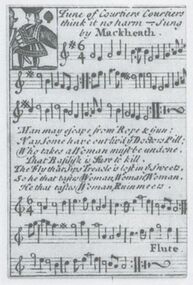 Tune of Courtiers Courtiers
think it no harm. Sung
by Mackheath.
Man may escape from Rope & Gun;
Nay, Some have out liv'd y Doctors Pill;
Who takes a Woman must be undone,
That Basilisk is Sure to kill.
The Fly that Sips Treacle is lost in y Sweets,
So he that tastes Woman, Woman, Woman,
He that tastes Woman, Ruin meets
Flute